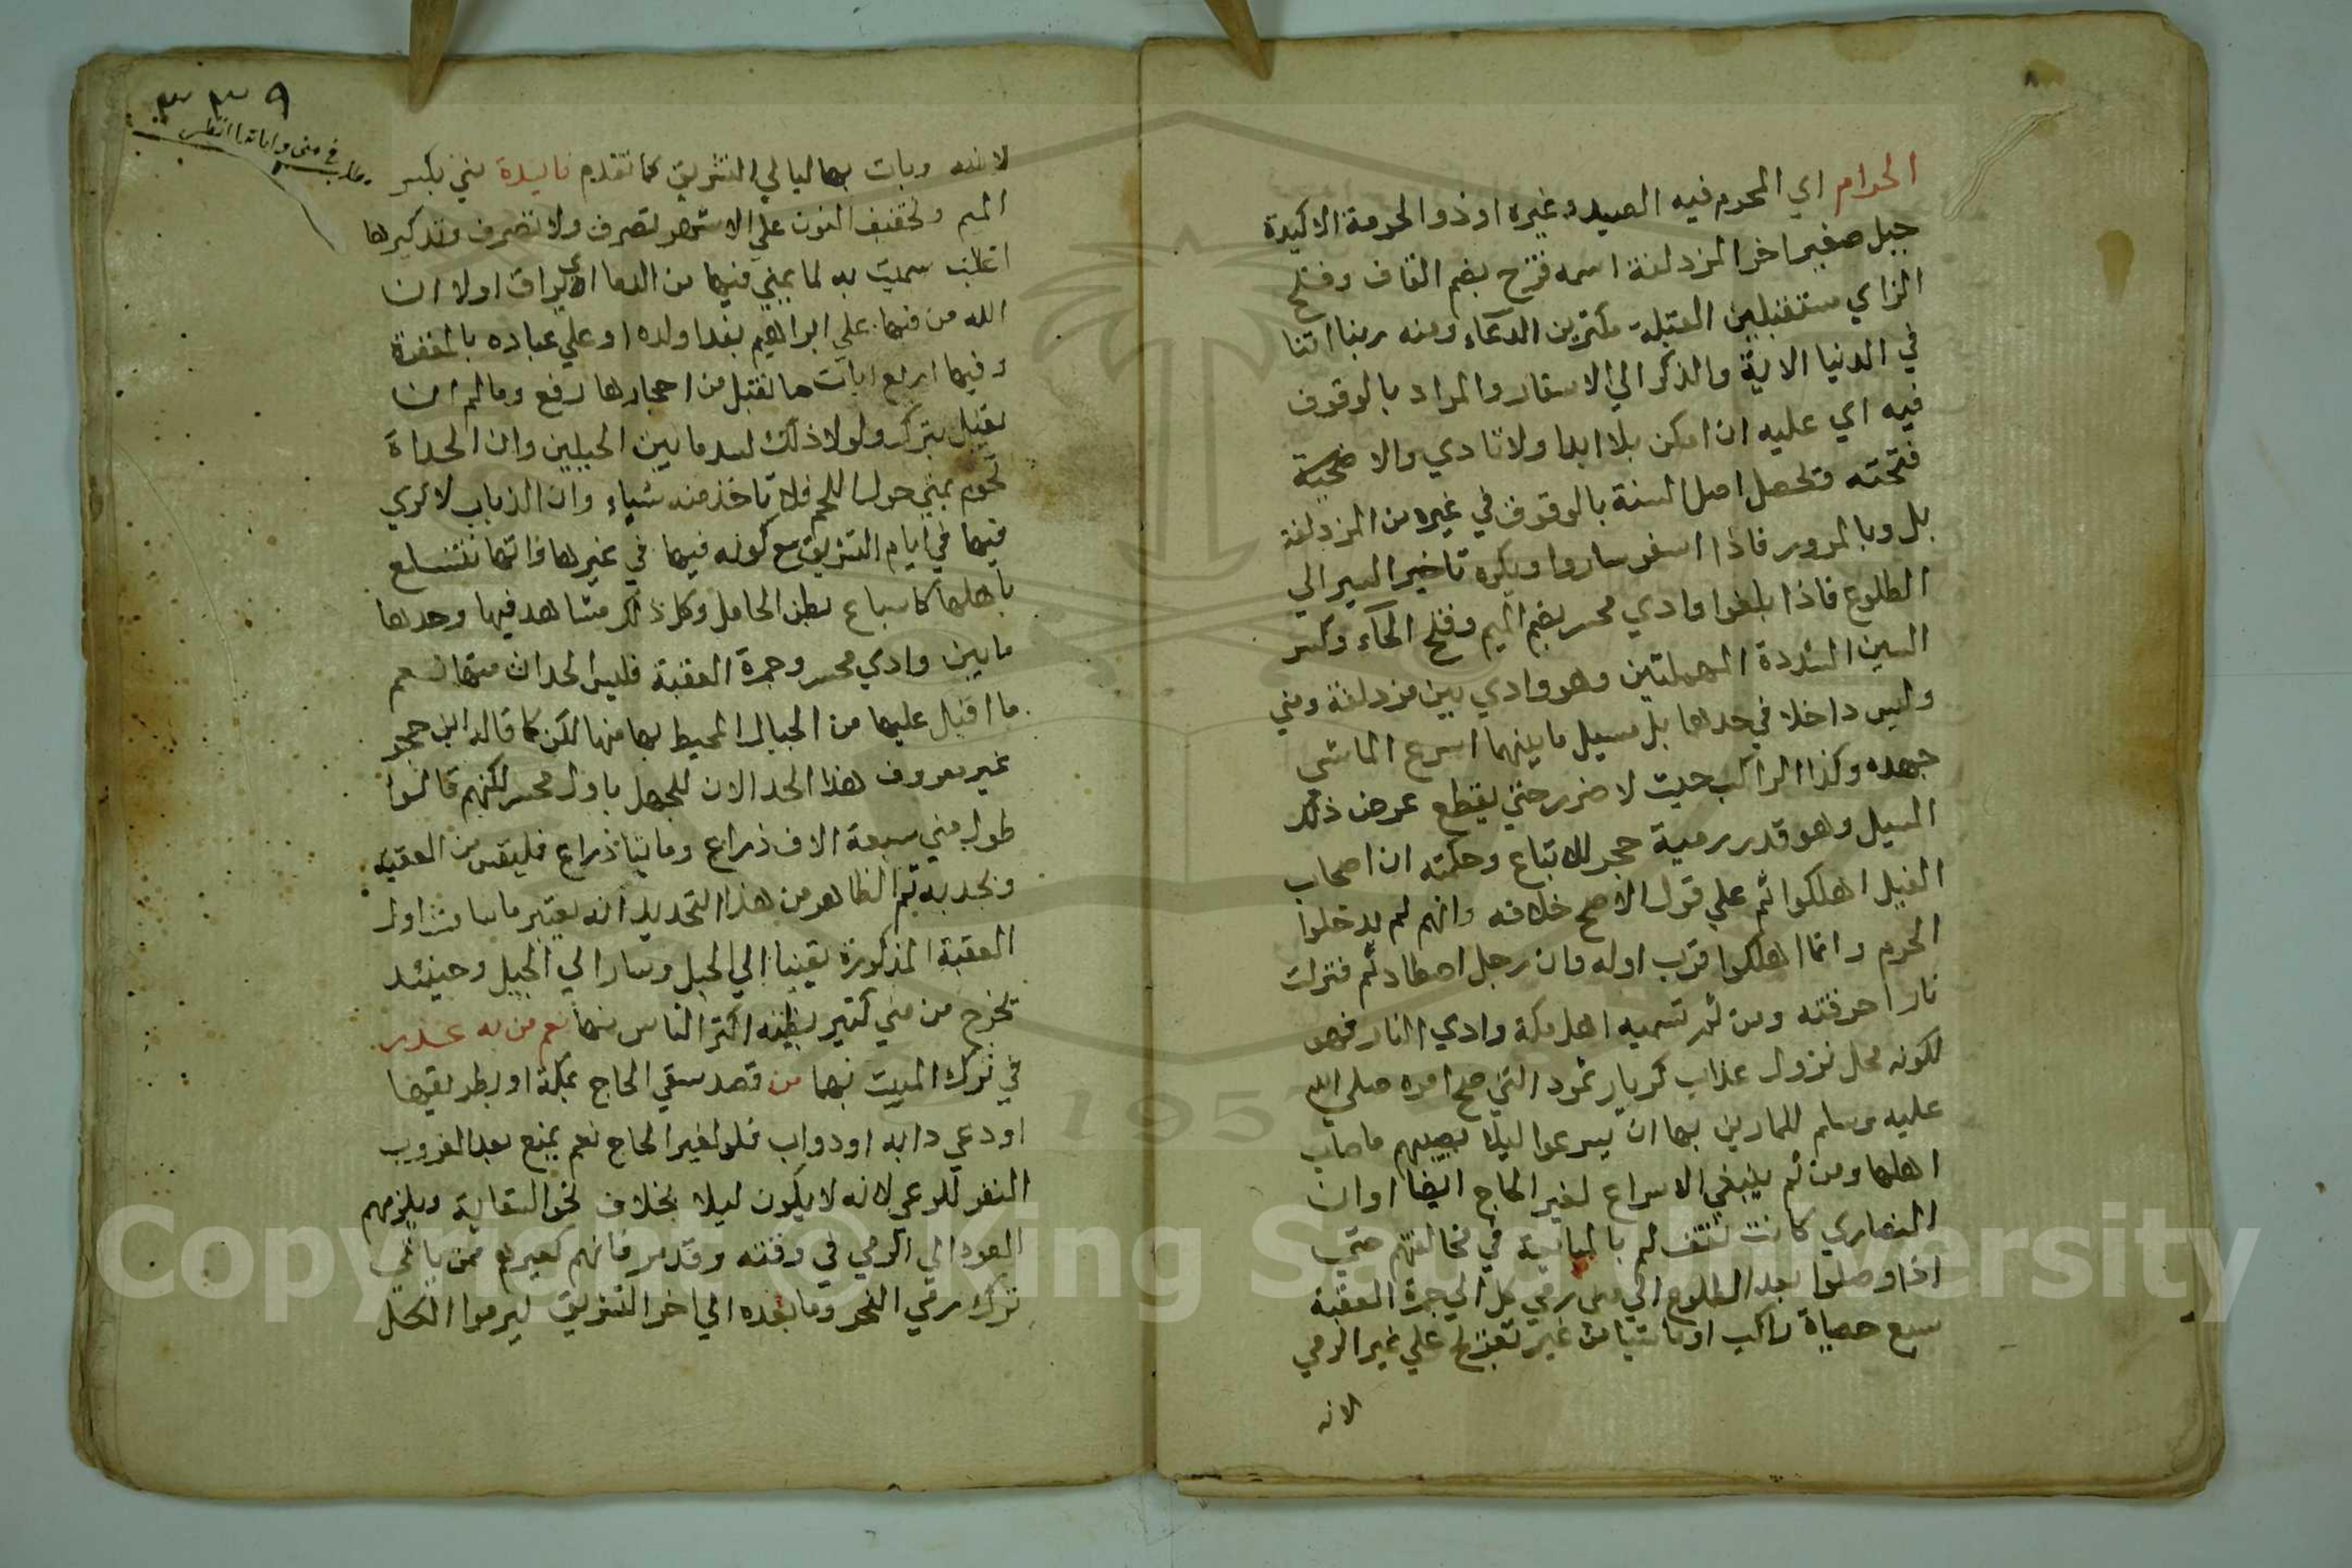 الحرام اي المحرم فيه الصيد وغيره او ذو الحرمة الاكيدة
جبل صغير اخر المزدلفة اسمه قزح بضم القاف وفتح
الزاي مستقبلين القبلة مكثرين الدعاء ومنه ربنا اتنا
في الدنيا الاية والذكر الي الاسفار والمراد بالوقوف
فيه اي عليه ان امكن بلا ايذا ولا تاذي والا
فتحته وتحصل اصل السنة بالوقوف في غيره من المزدلفة
بل وبالمرور فاذا اسفر ساروا ويكره تاخير السير الي
الطلوع فاذا بلغوا وادي محسر بضم الميم وفتح الحاء وكسر
السين المشددة المهملتين وهو وادي بين مزدلفة ومني
وليس داخلا في حدها بل مسيل ما بينهما اسرع الماشي
جهده وكذا الراكب حيث لا ضرر حتي يقطع عرض ذلك
المسيل وهو قدر رمية حجر للاتباع وحكمته ان اصحاب
الفيل اهلكوا ثم علي قول الاصح خلافه وانهم لم يدخلوا
الحرم وانما اهلكوا قرب اوله وان رجل اصطاد ثم فنزلت
نار احرقته ومن ثم تسميه اهل مكة وادي النار فهو
لكونه محل نزول عذاب كديار ثمود التي صح امره صلي الله
عليه وسلم للمارين بها ان يسرعوا ليلا يصيبهم ما صاب
اهلها ومن ثم ينبغي الاسراع لغير الحاج ايضا او ان
النصاري كانت تقف ثم بالمبالغة في مخالفتهم حتي
اذا وصلوا بعد الطلوع الي مني رمي كل الي جمرة العقبة
سبع حصاة راكب او ماشيا من غير تعريج علي غير الرمي
لانه
٣٣٩
مطلب في منى واياتها انظر
لانفسه وبات بها ليالي التشريق كما تقدم فايدة مني بكسر
الميم وتخفيف النون علي الاشهر تصرف ولا تصرف وتذكيرها
اغلب سميت به لما يمني فيها من الدما اي يراق اولا ان
الله من فيها علي ابراهيم بفدا ولده او علي عباده بالمغفرة
وفيها اربع ايات ما تقبل من احجارها رفع وما لم ان
يقبل يترك ولولا ذلك لسد ما بين الجبلين وان الحداة
تحوم بمني حول اللحم فلا تاخذ منه شياء وان الذباب لا يري
فيها في ايام التشريق مع كونه فيها في غيرها وانها تتسع
باهلها كاتساع بطن الحامل وكل ذلك مشاهد فيها وحدها
ما بين وادي محسر وجمرة العقبة فليس الحدان منها نعم
ما اقبل عليها من الجبال المحيط بها منها لكن كما قاله ابن حجر
غير معروف هذا الحد الان للجهل باول محسر لكنهم قالوا
طول مني سبعة الاف ذراع ومايتا ذراع فليقس من العقبة
ويحد به ثم الظاهر من هذا التحديد انه يعتبر ما اول
العقبة المذكورة يقينا الي الجبل ويسارا الي الجبل وحينئذ
تخرج من مني كثير يظنه اكثر الناس منها نعم من به عذر
في ترك المبيت بها من قصد سقي الحاج بمكة او بطريقها
او دعي دابه او دواب ولو لغير الحاج نعم يمنع بعد الغروب
النفر للرعي لانه لا يكون ليلا بخلاف نحو السقاية ويلزمهم
العود الي الرمي في وقته وقد مر فانهم كغيرهم ممن ياتي
ترك رمي النحر وما بعده الي اخر التشريق ليرموا الكل
Copyright © King Saud University
1957